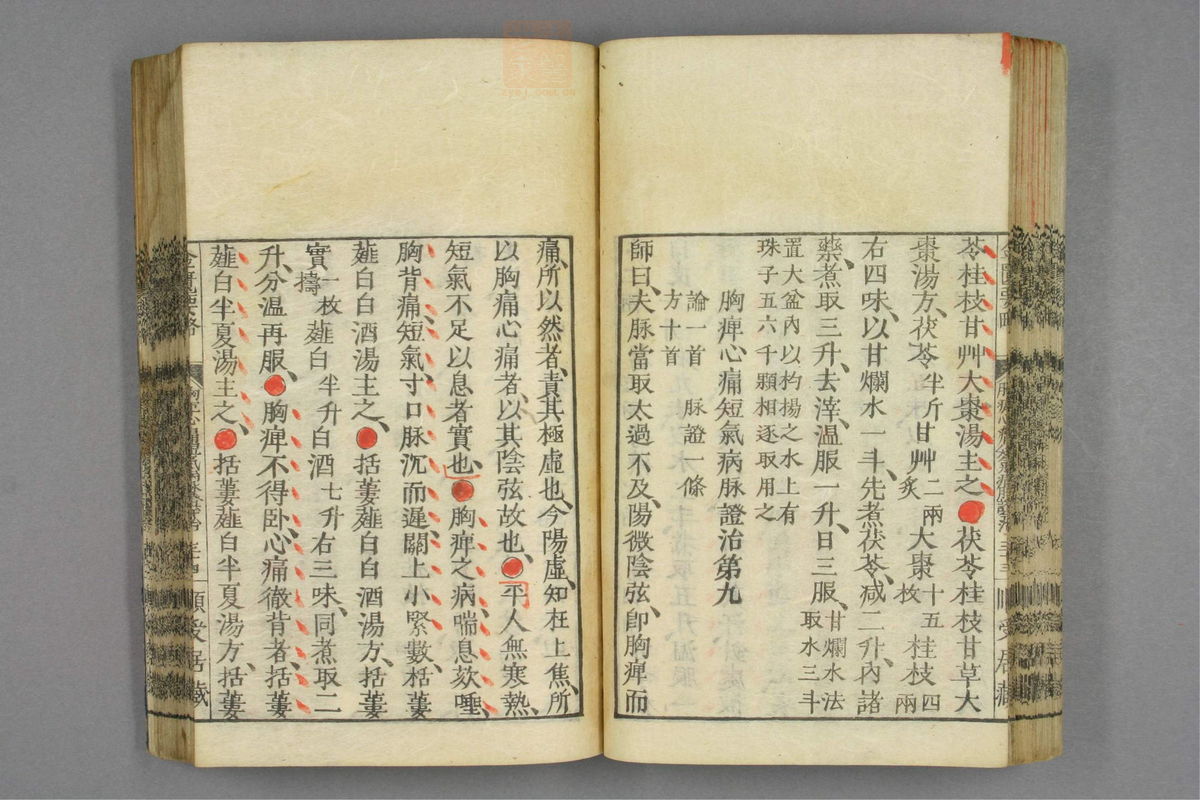 苓桂枝甘艸大棗湯主之●茯苓桂枝甘草大
棗湯方、茯苓半斤甘艸二兩炙大棗十五枚桂枝四兩
右四味、以甘爛水一斗、先煮茯苓、減二升、內諸
藥、煮取三升、去滓、溫服一升、日三服、甘爛水法取水三斗
置大盆內以杓揚之水上有珠子五六千顆相逐取用之
胸痺心痛短氣病脉證治第九
論一首 脉證一條
方十首
師曰、夫脉當取太過不及、陽微陰弦、卽胸痺而
痛、所以然者、責其極虛也、今陽虛、知在上焦、所
以胸痛心痛者、以其陰弦故也、●平人無寒熱、
短氣不足以息者實也、●胸痺之病喘息欬唾、
胸背痛、短氣、寸口脉沉而遲、關上小緊數、栝蔞
薤白白酒湯主之、●括蔞薤白白酒湯方、括蔞
實一枚擣薤白半升白酒七升右三味、同煮取二
升、分溫再服、●胸痺不得臥、心痛徹背者、括蔞
薤白半夏湯主之、●括蔞薤白半夏湯方、括蔞